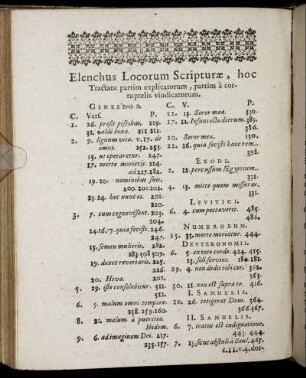 Elenchus Locorum Scripturæ, hoc
Tractatu partim explicatorum, partim à cor-
ruptelis vindicatorum.
GENESEOS.
C. Vers. P.
1. 26. præsit piscibus, 215.
31. valdè bona. 211 212.
2. 9. lignum vitæ. v. 17. de
omni. 252. 253.
15. ut operaretur. 247.
17. morte morieris. 214.
ad 237. 282.
19. 20. nominibus suis.
200. 201. 202.
23. 24. hoc nunc os. 220.
3. 7. cum cognovissent. 203.
14. 16. 17. quia fecisti. 246.
247.
15. semen mulieris. 282.
19. donec revertaris. 215.
221.
20. Heva. 201.
5. 29. iste consolabitur. 511.
6. 5. malum omni tempore.
258. 259. 260.
8. 21. malum à pueritia.
Ibidem.
9. 6. ad imaginem Dei. 217.
235. 257.
C. V. P.
12. 13. Soror mea. 380.
17. 17. 385.
386.
20. Soror mea. 380.
22. 16. quia fecisti hanc rem.
EXODI.
2. 12. percussum Ægyptium.
4. 13. mitte quem missurus.
LEVITICI.
6. 4. cum peccaverit. 485.
486.
NUMERORUM.
15. 35. morte moriatur. 444.
DEUTERONOMII.
6. 5. ex toto corde. 414. 415.
13. soli servies. 180. 181.
29. 4. non dedit vobis cor.
30. 11. non est supra te. 416.
I. SAMUELIS.
10. 26. tetigerat Deus. 364.
366. 367.
II. SAMUELIS.
6. 7. iratus est indignatione.
443. 444.
7. 15. sicut abstuli à Saul. 465.